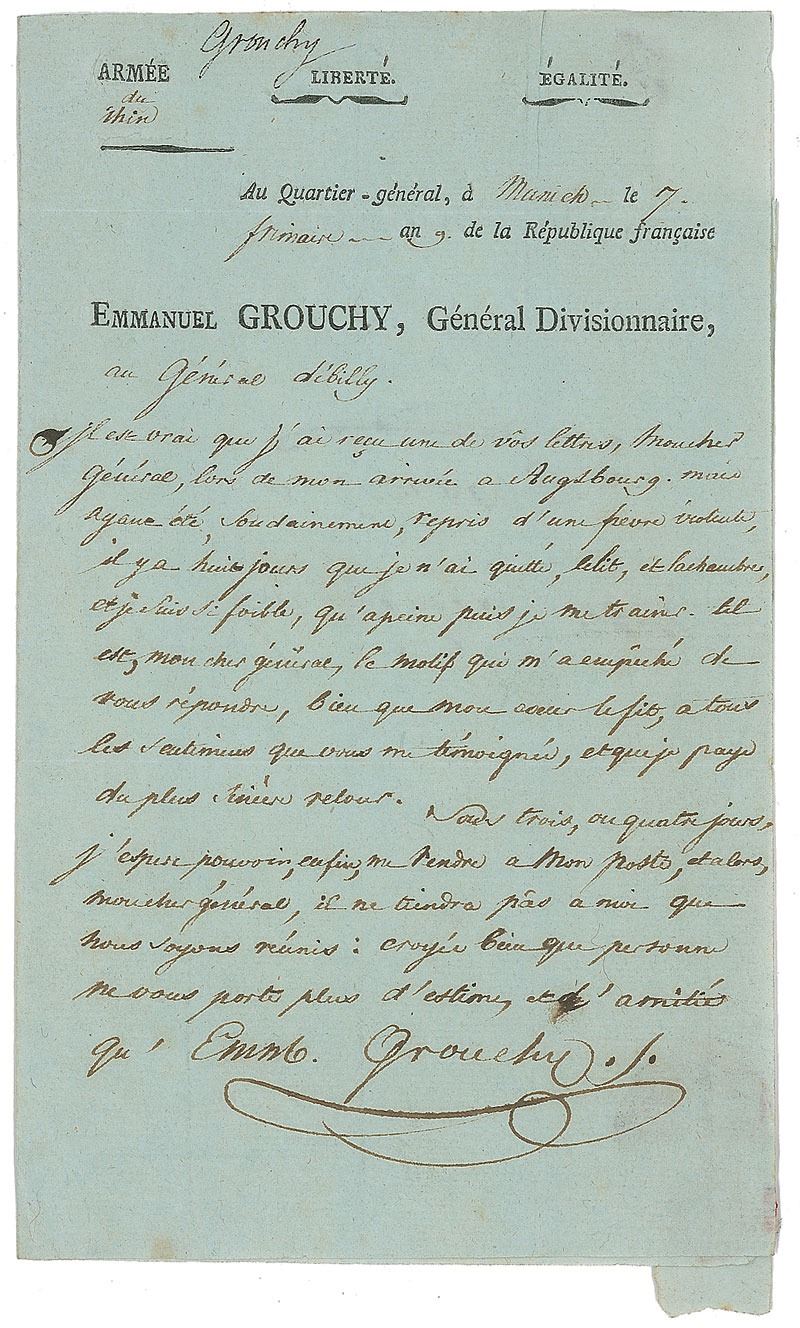 Grouchy
ARMÉE
du
Rhin
LIBERTÉ.
ÉGALITÉ.
Au Quartier-général, à Munich le 7
frimaire an 9 de la République française
EMMANUEL GROUCHY, Général Divisionnaire,
au Général débilly.
il est vrai que j'ai reçu une de vôs lettres, mon cher
général, lors de mon arrivée a Augsbourg. mais
ayant été, soudainement, repris d'une fievre violente,
il y a huit jours que je n'ai quitté, le lit, et la chambre,
et je suis si foible, qu'a peine puis je me trainer. tel
est, mon cher général, le motif qui m'a empêché de
vous répondre, bien que mon coeur le fit, a tous
les sentimens que vous me témoignée, et que je paye
du plus sincère retour.
Sous trois, ou quatre jours,
j'espere pouvoir, enfin, me rendre a mon poste, et alors,
mon cher général, il ne tiendra pâs a moi que
nous soyons réunis : croyée bien que personne
ne vous porte plus d'estime, et d'amitié
qu' Emm. Grouchy ./.